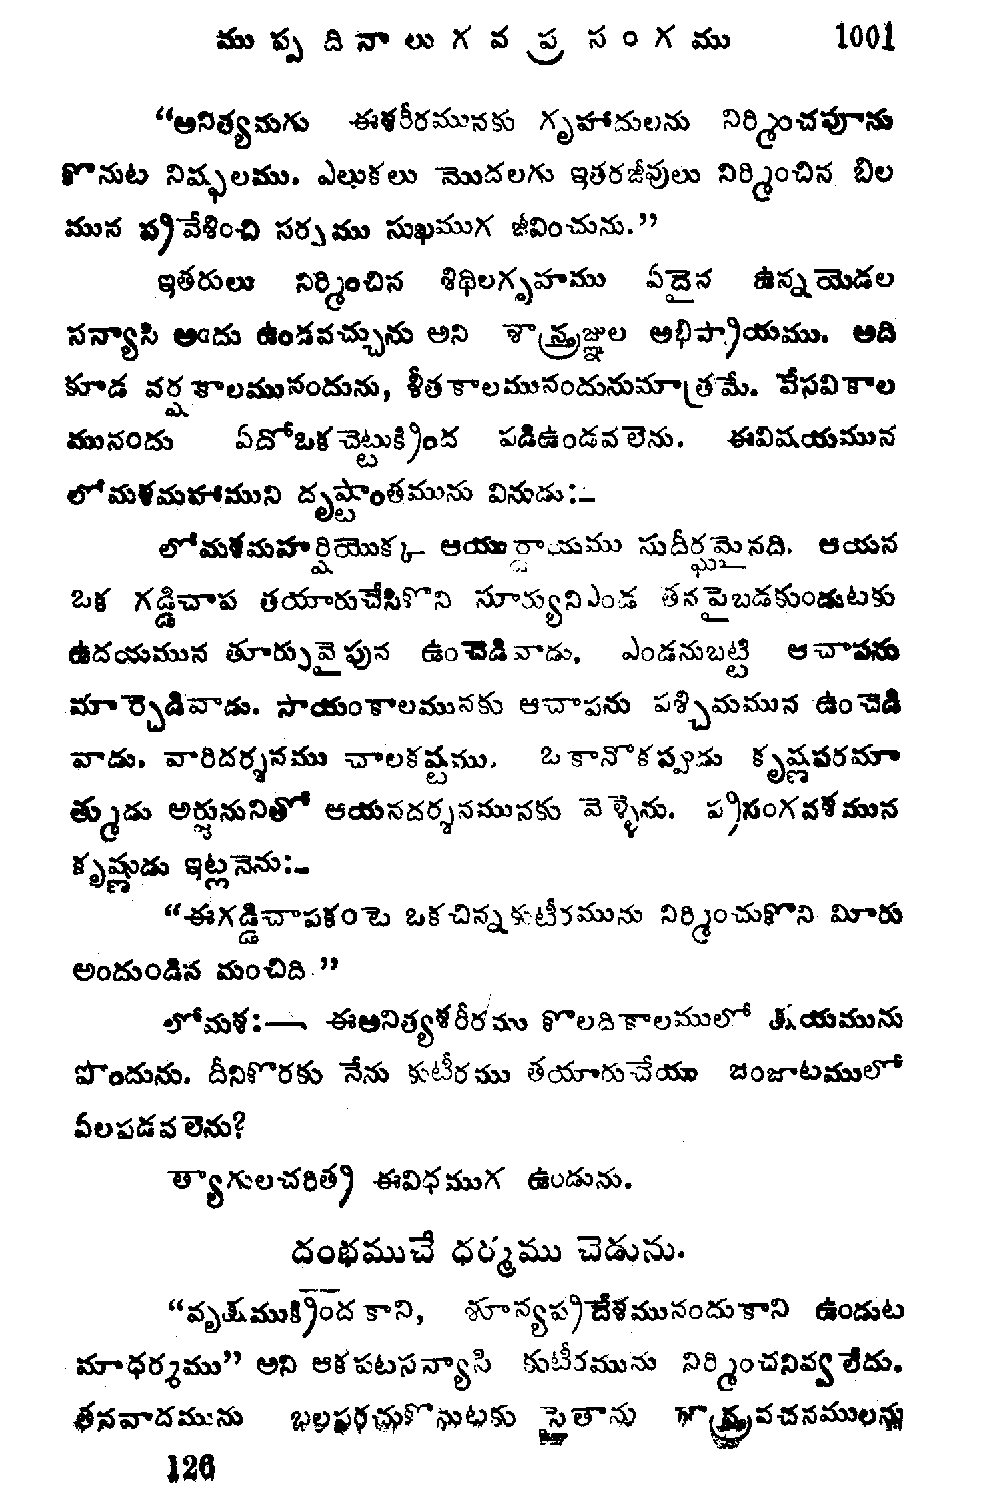 ముప్పదినాలుగవ ప్రసంగము 1001
“అనిత్యమగు ఈశరీరమునకు గృహాదులను నిర్మించవూను
కొనుట నిష్ఫలము. ఎలుకలు మొదలగు ఇతరజీవులు నిర్మించిన బిల
మున ప్రవేశించి సర్పము సుఖముగ జీవించును.”
ఇతరులు నిర్మించిన శిథిలగృహము ఏదైన ఉన్నయెడల
సన్యాసి అందు ఉండవచ్చును అని శాస్త్రజ్ఞుల అభిప్రాయము. అది
కూడ వర్షకాలమునందును, శీతకాలమునందునుమాత్రమే. వేసవికాల
మునందు ఏదోఒకచెట్టుక్రింద పడిఉండవలెను. ఈవిషయమున
లోమశమహాముని దృష్టాంతమును వినుడు:–
లోమశమహర్షియొక్క ఆయుర్దాయము సుదీర్ఘమైనది. ఆయన
ఒక గడ్డిచాప తయారుచేసికొని సూర్యునిఎండ తనపైబడకుండుటకు
ఉదయమున తూర్పువైపున ఉంచెడివాడు, ఎండనుబట్టి ఆచాపను
మార్చెడివాడు. సాయంకాలమునకు ఆచాపను పశ్చిమమున ఉంచెడి
వాడు. వారిదర్శనము చాలకష్టము. ఒకానొకప్పుడు కృష్ణపరమా
త్ముడు అర్జునునితో ఆయనదర్శనమునకు వెళ్ళెను. ప్రసంగవశమున
కృష్ణుడు ఇట్లనెను:–
“ఈగడ్డిచాపకంటె ఒకచిన్నకుటీరమును నిర్మించుకొని మీరు
అందుండిన మంచిది.”
లోమశ:— ఈఅనిత్యశరీరము కొలదికాలములో క్షయమును
పొందును. దీనికొరకు నేను కుటీరము తయారుచేయు జంజాటములో
ఏలపడవలెను?
త్యాగులచరిత్ర ఈవిధముగ ఉండును.
దంభముచే ధర్మము చెడును.
“వృక్షముక్రింద కాని, శూన్యప్రదేశమునందుకాని ఉండుట
మాధర్మము” అని ఆకపటసన్యాసి కుటీరమును నిర్మించనివ్వలేదు.
తనవాదమును బలపరచుకొనుటకు సైతాను శాస్త్రవచనములను
126